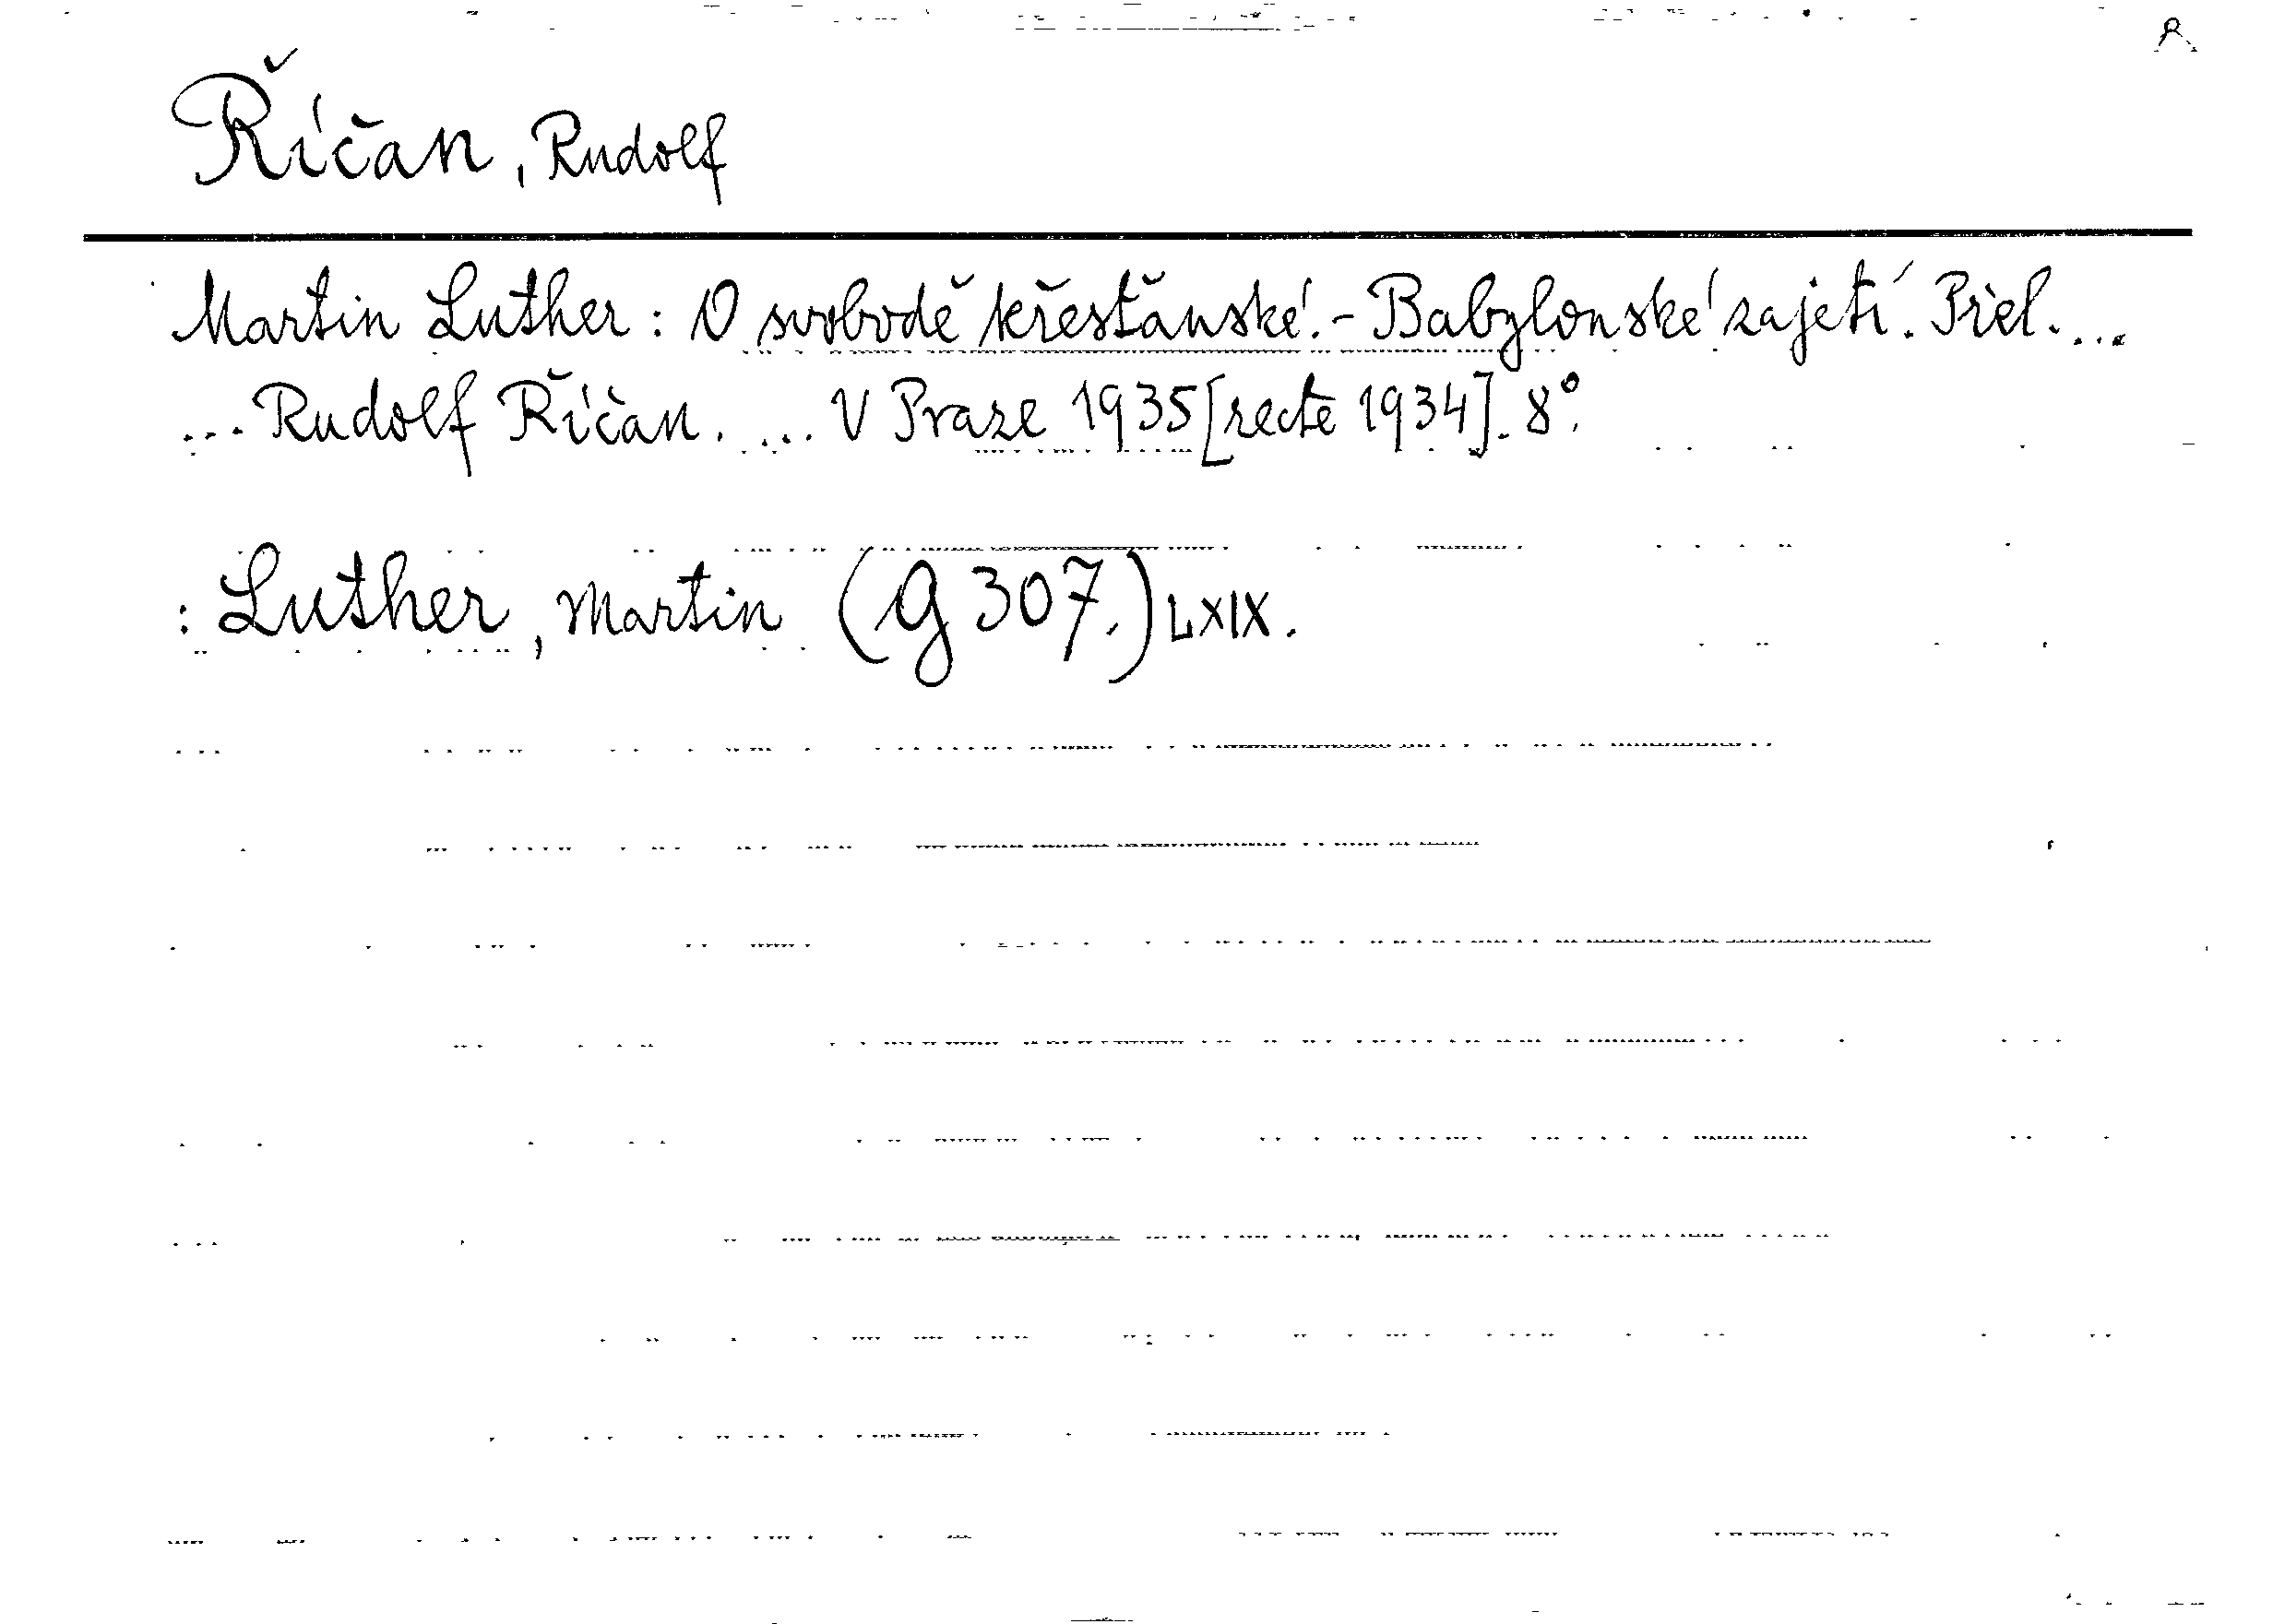 R
Říčan, Rudolf
Martin Luther: O svobodě křesťanské. - Babylonské zajetí. Přel. ...
... Rudolf Říčan. ... V Praze 1935 [recte 1934]. 8°.
: Luther, Martin (G 307.) LXIX.